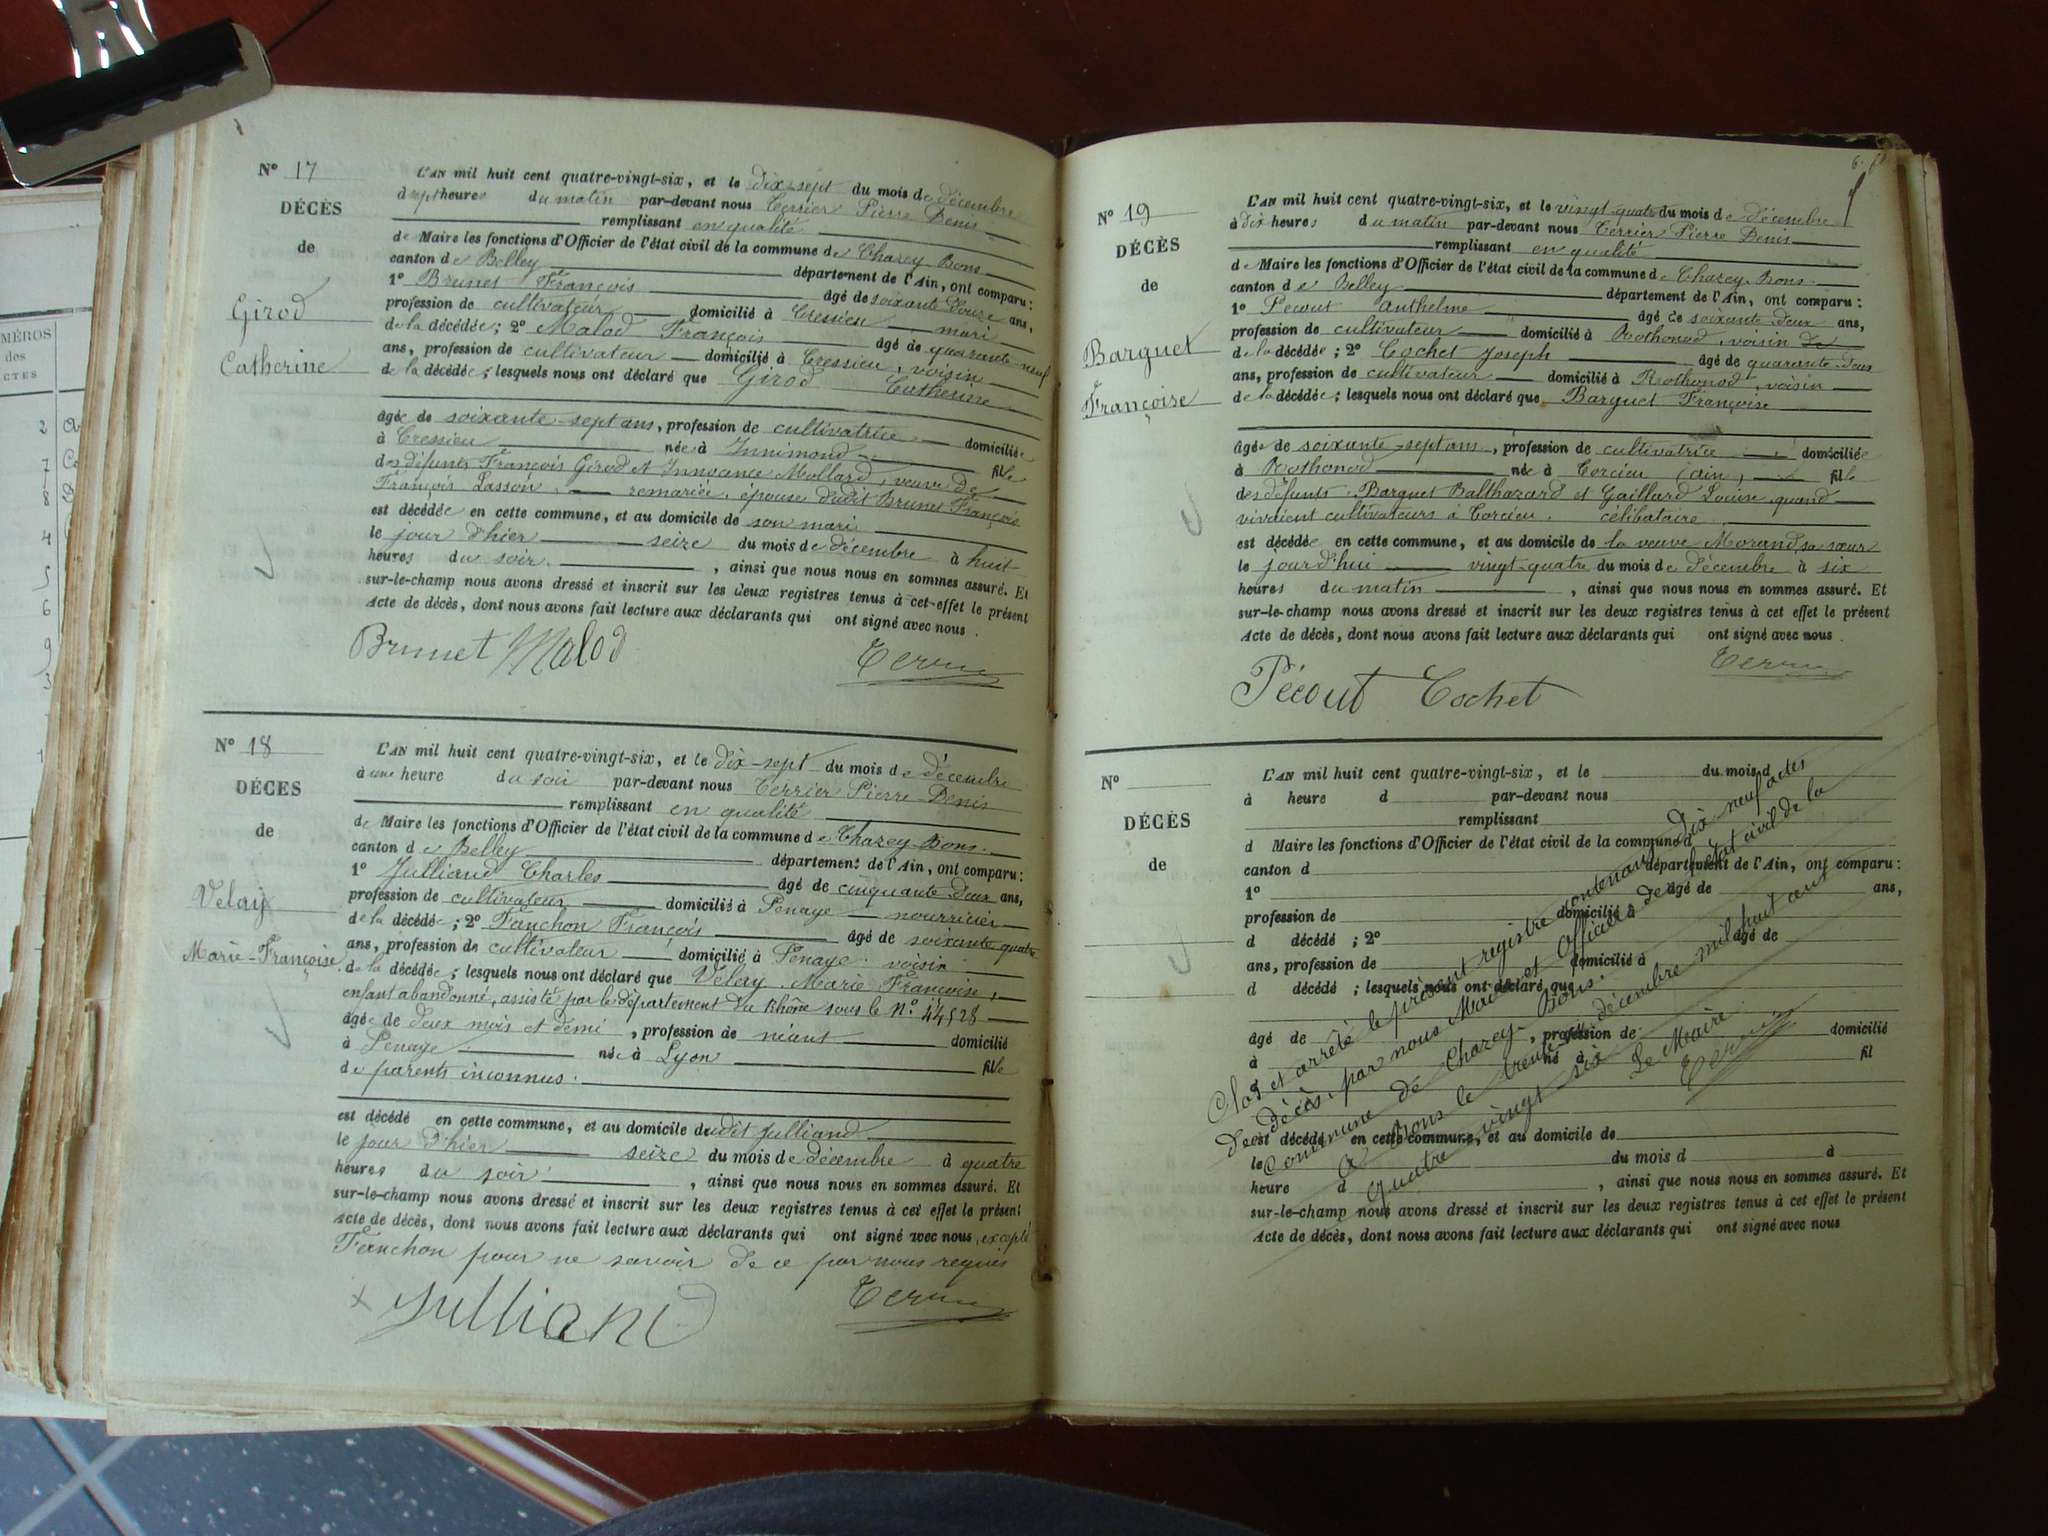 MÉROS
des
CTES
2
7
8
4
5
6
9
3
1
N° 17
DÉCÈS
de
Girod
Catherine
L'AN mil huit cent quatre-vingt-six, et le dix-sept du mois de décembre
à sept heures du matin par-devant nous Terrier Pierre Denis
remplissant en qualité
de Maire les fonctions d'Officier de l'état civil de la commune de Chazey-Bons
canton de Belley département de l'Ain, ont comparu :
1° Brunet François âgé de soixante-douze ans,
profession de cultivateur domicilié à Cressieu, mari
de la décédée ; 2° Malod François âgé de quarante-neuf
ans, profession de cultivateur domicilié à Cressieu, voisin
de la décédée ; lesquels nous ont déclaré que Girod Catherine
âgée de soixante-sept ans, profession de cultivatrice domiciliée
à Cressieu née à Innimond fille
des défunts François Girod et Innocence Mollard, veuve de
François Lasson, remariée, épouse dudit Brunet François
est décédée en cette commune, et au domicile de son mari
le jour d'hier seize du mois de décembre à huit
heures du soir, ainsi que nous nous en sommes assuré. Et
sur-le-champ nous avons dressé et inscrit sur les deux registres tenus à cet effet le présent
Acte de décès, dont nous avons fait lecture aux déclarants qui ont signé avec nous.
Brunet Malod Terrier
N° 18
DÉCÈS
de
Velay
Marie-Françoise
L'AN mil huit cent quatre-vingt-six, et le dix-sept du mois de décembre
à une heure du soir par-devant nous Terrier Pierre Denis
remplissant en qualité
de Maire les fonctions d'Officier de l'état civil de la commune de Chazey-Bons
canton de Belley département de l'Ain, ont comparu :
1° Julliand Charles âgé de cinquante-deux ans,
profession de cultivateur domicilié à Penaye nourricier
de la décédée ; 2° Fanchon François âgé de soixante-quatre
ans, profession de cultivateur domicilié à Penaye. voisin
de la décédée ; lesquels nous ont déclaré que Velay Marie Françoise,
enfant abandonné, assisté par le département du Rhône sous le N° 44528
âgée de deux mois et demi, profession de néant domicilié
à Penaye née à Lyon fille
de parents inconnus.
est décédé en cette commune, et au domicile dudit Julliand
le jour d'hier seize du mois de décembre à quatre
heures du soir, ainsi que nous nous en sommes assuré. Et
sur-le-champ nous avons dressé et inscrit sur les deux registres tenus à cet effet le présent
Acte de décès, dont nous avons fait lecture aux déclarants qui ont signé avec nous, excepté
Fanchon pour ne savoir de ce par nous requis
Julliand Terrier
6.
N° 19
DÉCÈS
de
Barquet
Françoise
L'AN mil huit cent quatre-vingt-six, et le vingt-quatre du mois de décembre
à dix heures du matin par-devant nous Terrier Pierre Denis
remplissant en qualité
de Maire les fonctions d'Officier de l'état civil de la commune de Chazey-Bons
canton de Belley département de l'Ain, ont comparu :
1° Pecout Anthelme âgé de soixante-deux ans,
profession de cultivateur domicilié à Rothonod, voisin de
de la décédée ; 2° Cochet Joseph âgé de quarante-deux
ans, profession de cultivateur domicilié à Rothonod, voisin
de la décédée ; lesquels nous ont déclaré que Barquet Françoise
âgée de soixante-sept ans, profession de cultivatrice domiciliée
à Rothonod née à Torcieu (ain) fille
des défunts Barquet Balthazard et Gaillard Louise quand
vivaient cultivateurs à Torcieu. célibataire
est décédée en cette commune, et au domicile de la veuve Morand, sa sœur
le jourd'hui vingt-quatre du mois de décembre à six
heures du matin, ainsi que nous nous en sommes assuré. Et
sur-le-champ nous avons dressé et inscrit sur les deux registres tenus à cet effet le présent
Acte de décès, dont nous avons fait lecture aux déclarants qui ont signé avec nous.
Terrier
Pécout Cochet
N°
DÉCÈS
de
L'AN mil huit cent quatre-vingt-six, et le du mois d
à heure d par-devant nous
remplissant
d Maire les fonctions d'Officier de l'état civil de la commune d
canton d département de l'Ain, ont comparu :
1° âgé de ans,
profession de domicilié à
d décédé ; 2° âgé de
ans, profession de domicilié à
d décédé ; lesquels nous ont déclaré que
âgé de , profession de domicilié
à né à fil
d
est décédé en cette commune, et au domicile de
le du mois d à
heure d , ainsi que nous nous en sommes assuré. Et
sur-le-champ nous avons dressé et inscrit sur les deux registres tenus à cet effet le présent
Acte de décès, dont nous avons fait lecture aux déclarants qui ont signé avec nous
Clos et arrêté le présent registre contenant dix neuf actes
de décès, par nous Maire et Officier de l'état civil de la
commune de Chazey-Bons.
A Bons le trente un décembre mil huit cent
quatre vingt six Le Maire
Terrier